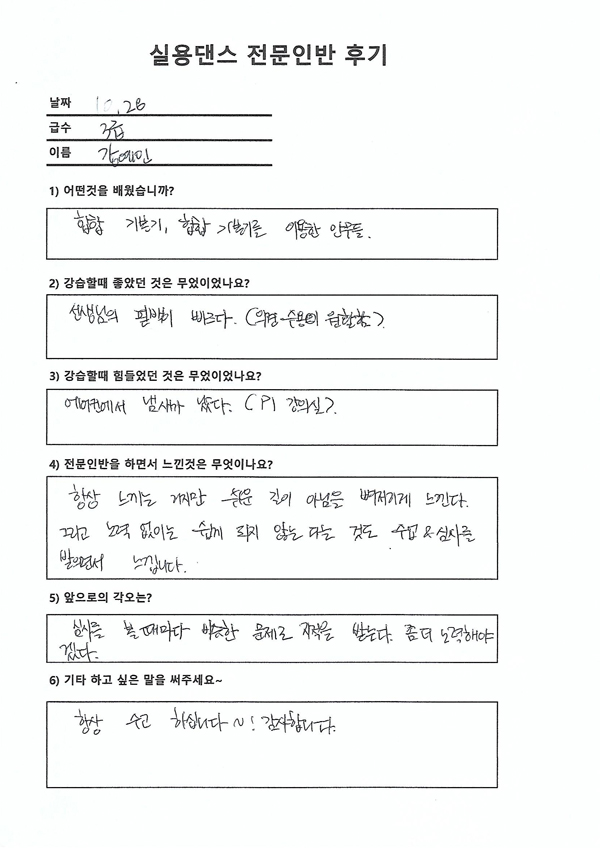 실용댄스 전문인반 후기
날짜 10.28
급수 3급
이름 김예민
1) 어떤것을 배웠습니까?
힙합 기본기, 힙합 기본기를 이용한 안무들.
2) 강습할때 좋았던 것은 무었이었나요?
선생님의 핃백이 빠르다. (의견 수용이 원활함).
3) 강습할때 힘들었던 것은 무었이었나요?
에어컨에서 냄새가 났다. (P1 강의실).
4) 전문인반을 하면서 느낀것은 무엇이나요?
항상 느끼는 거지만 쉬운 길이 아님을 뼈저리게 느낀다.
그리고 노력 없이는 쉽게 되지 않는 다는 것도 수업 & 심사를
받으면서 느낍니다.
5) 앞으로의 각오는?
심사를 볼 때마다 비슷한 문제로 지적을 받는다. 좀 더 노력해야
겠다.
6) 기타 하고 싶은 말을 써주세요~
항상 수고 하십니다~! 감사합니다.